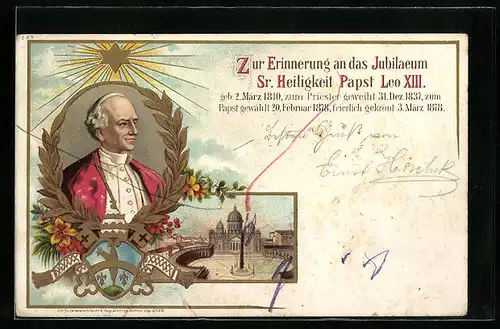 Zur Erinnerung an das Jubilaeum
Sr. Heiligkeit Papst Leo XIII.
geb. 2. März 1810, zum Priester geweiht 31. Dez. 1837, zum
Papst gewählt 20. Februar 1878, feierlich gekrönt 3. März 1878.
Gruß von
Ernst